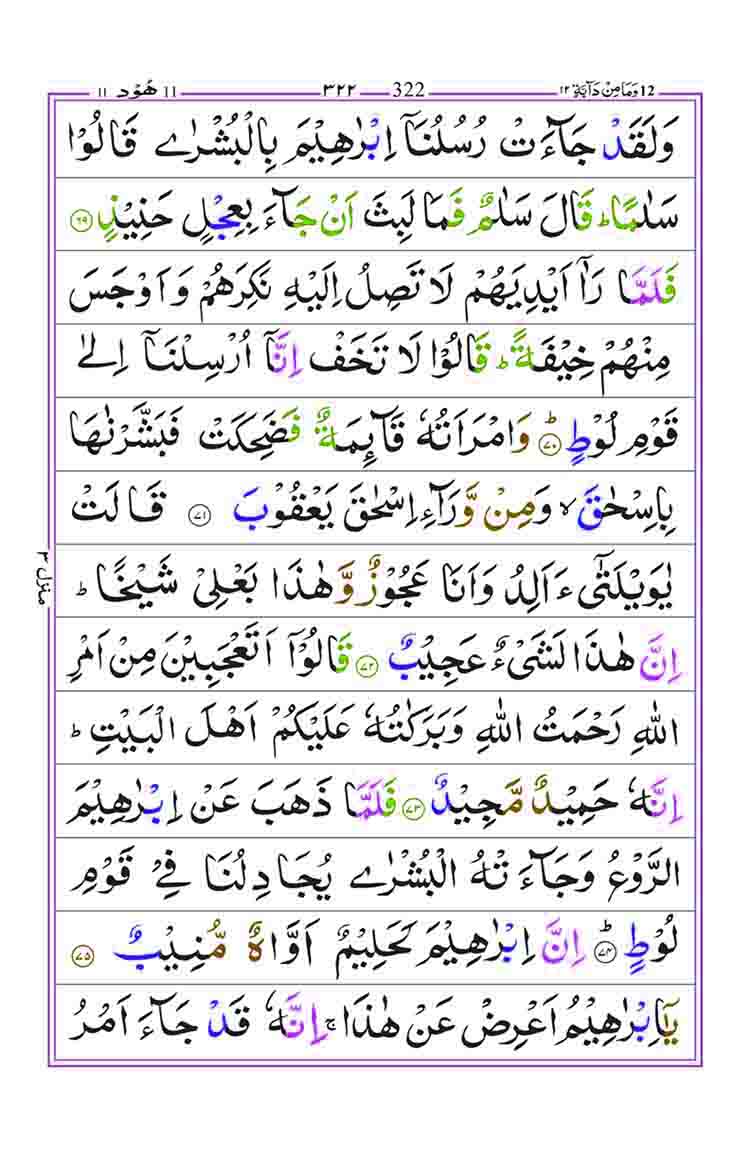 12 وَمَا مِنْ دَآبَّةٍ ۱۲ 322 ۳۲۲ 11 هُوْد ۱۱
وَلَقَدْ جَآءَتْ رُسُلُنَاۤ اِبْرٰهِيْمَ بِالْبُشْرٰى قَالُوْا
سَلٰمًا ؕ قَالَ سَلٰمٌ فَمَا لَبِثَ اَنْ جَآءَ بِعِجْلٍ حَنِيْذٍ ۶۹
فَلَمَّا رَاٰۤ اَيْدِيَهُمْ لَا تَصِلُ اِلَيْهِ نَكِرَهُمْ وَاَوْجَسَ
مِنْهُمْ خِيْفَةً ؕ قَالُوْا لَا تَخَفْ اِنَّاۤ اُرْسِلْنَاۤ اِلٰى
قَوْمِ لُوْطٍ ؕ ۷۰ وَامْرَاَتُهٗ قَآئِمَةٌ فَضَحِكَتْ فَبَشَّرْنٰهَا
بِاِسْحٰقَ ۙ وَمِنْ وَّرَآءِ اِسْحٰقَ يَعْقُوْبَ ۷۱ قَالَتْ
يٰوَيْلَتٰٓى ءَاَلِدُ وَاَنَا عَجُوْزٌ وَّهٰذَا بَعْلِىْ شَيْخًا ؕ
اِنَّ هٰذَا لَشَىْءٌ عَجِيْبٌ ۷۲ قَالُوْۤا اَتَعْجَبِيْنَ مِنْ اَمْرِ
اللّٰهِ رَحْمَتُ اللّٰهِ وَبَرَكٰتُهٗ عَلَيْكُمْ اَهْلَ الْبَيْتِ ؕ
اِنَّهٗ حَمِيْدٌ مَّجِيْدٌ ۷۳ فَلَمَّا ذَهَبَ عَنْ اِبْرٰهِيْمَ
الرَّوْعُ وَجَآءَتْهُ الْبُشْرٰى يُجَادِلُنَا فِىْ قَوْمِ
لُوْطٍ ؕ ۷۴ اِنَّ اِبْرٰهِيْمَ لَحَلِيْمٌ اَوَّاهٌ مُّنِيْبٌ ۷۵
يٰۤاِبْرٰهِيْمُ اَعْرِضْ عَنْ هٰذَا ۚ اِنَّهٗ قَدْ جَآءَ اَمْرُ
منزل ۳